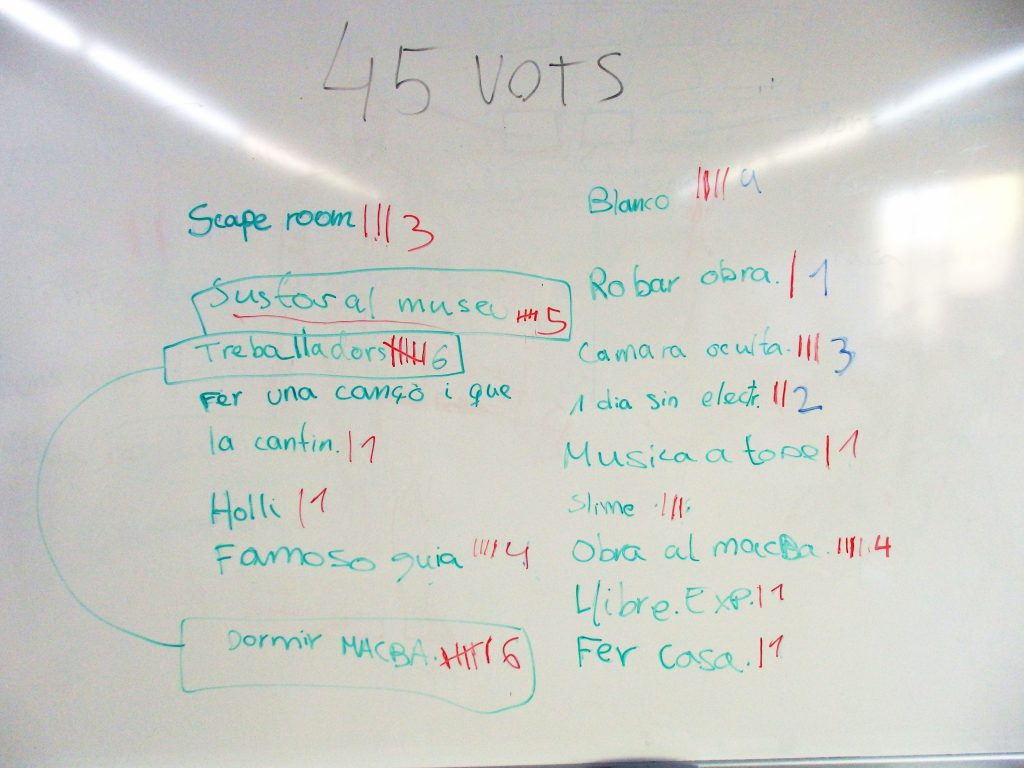 45 VOTS
Scape room ||| 3
Sustos al museu 5
Treballadors 6
Fer una cançò i que
la cantin. | 1
Holli | 1
Famoso guia |||| 4
Dormir MACBA. 6
Blanco |||| 4
Robar obra. | 1
Camara oculta. ||| 3
1 dia sin electr. || 2
Musica a tope | 1
Slime |||
Obra al macBa. |||| 4
Llibre. Exp. | 1
Fer casa. | 1